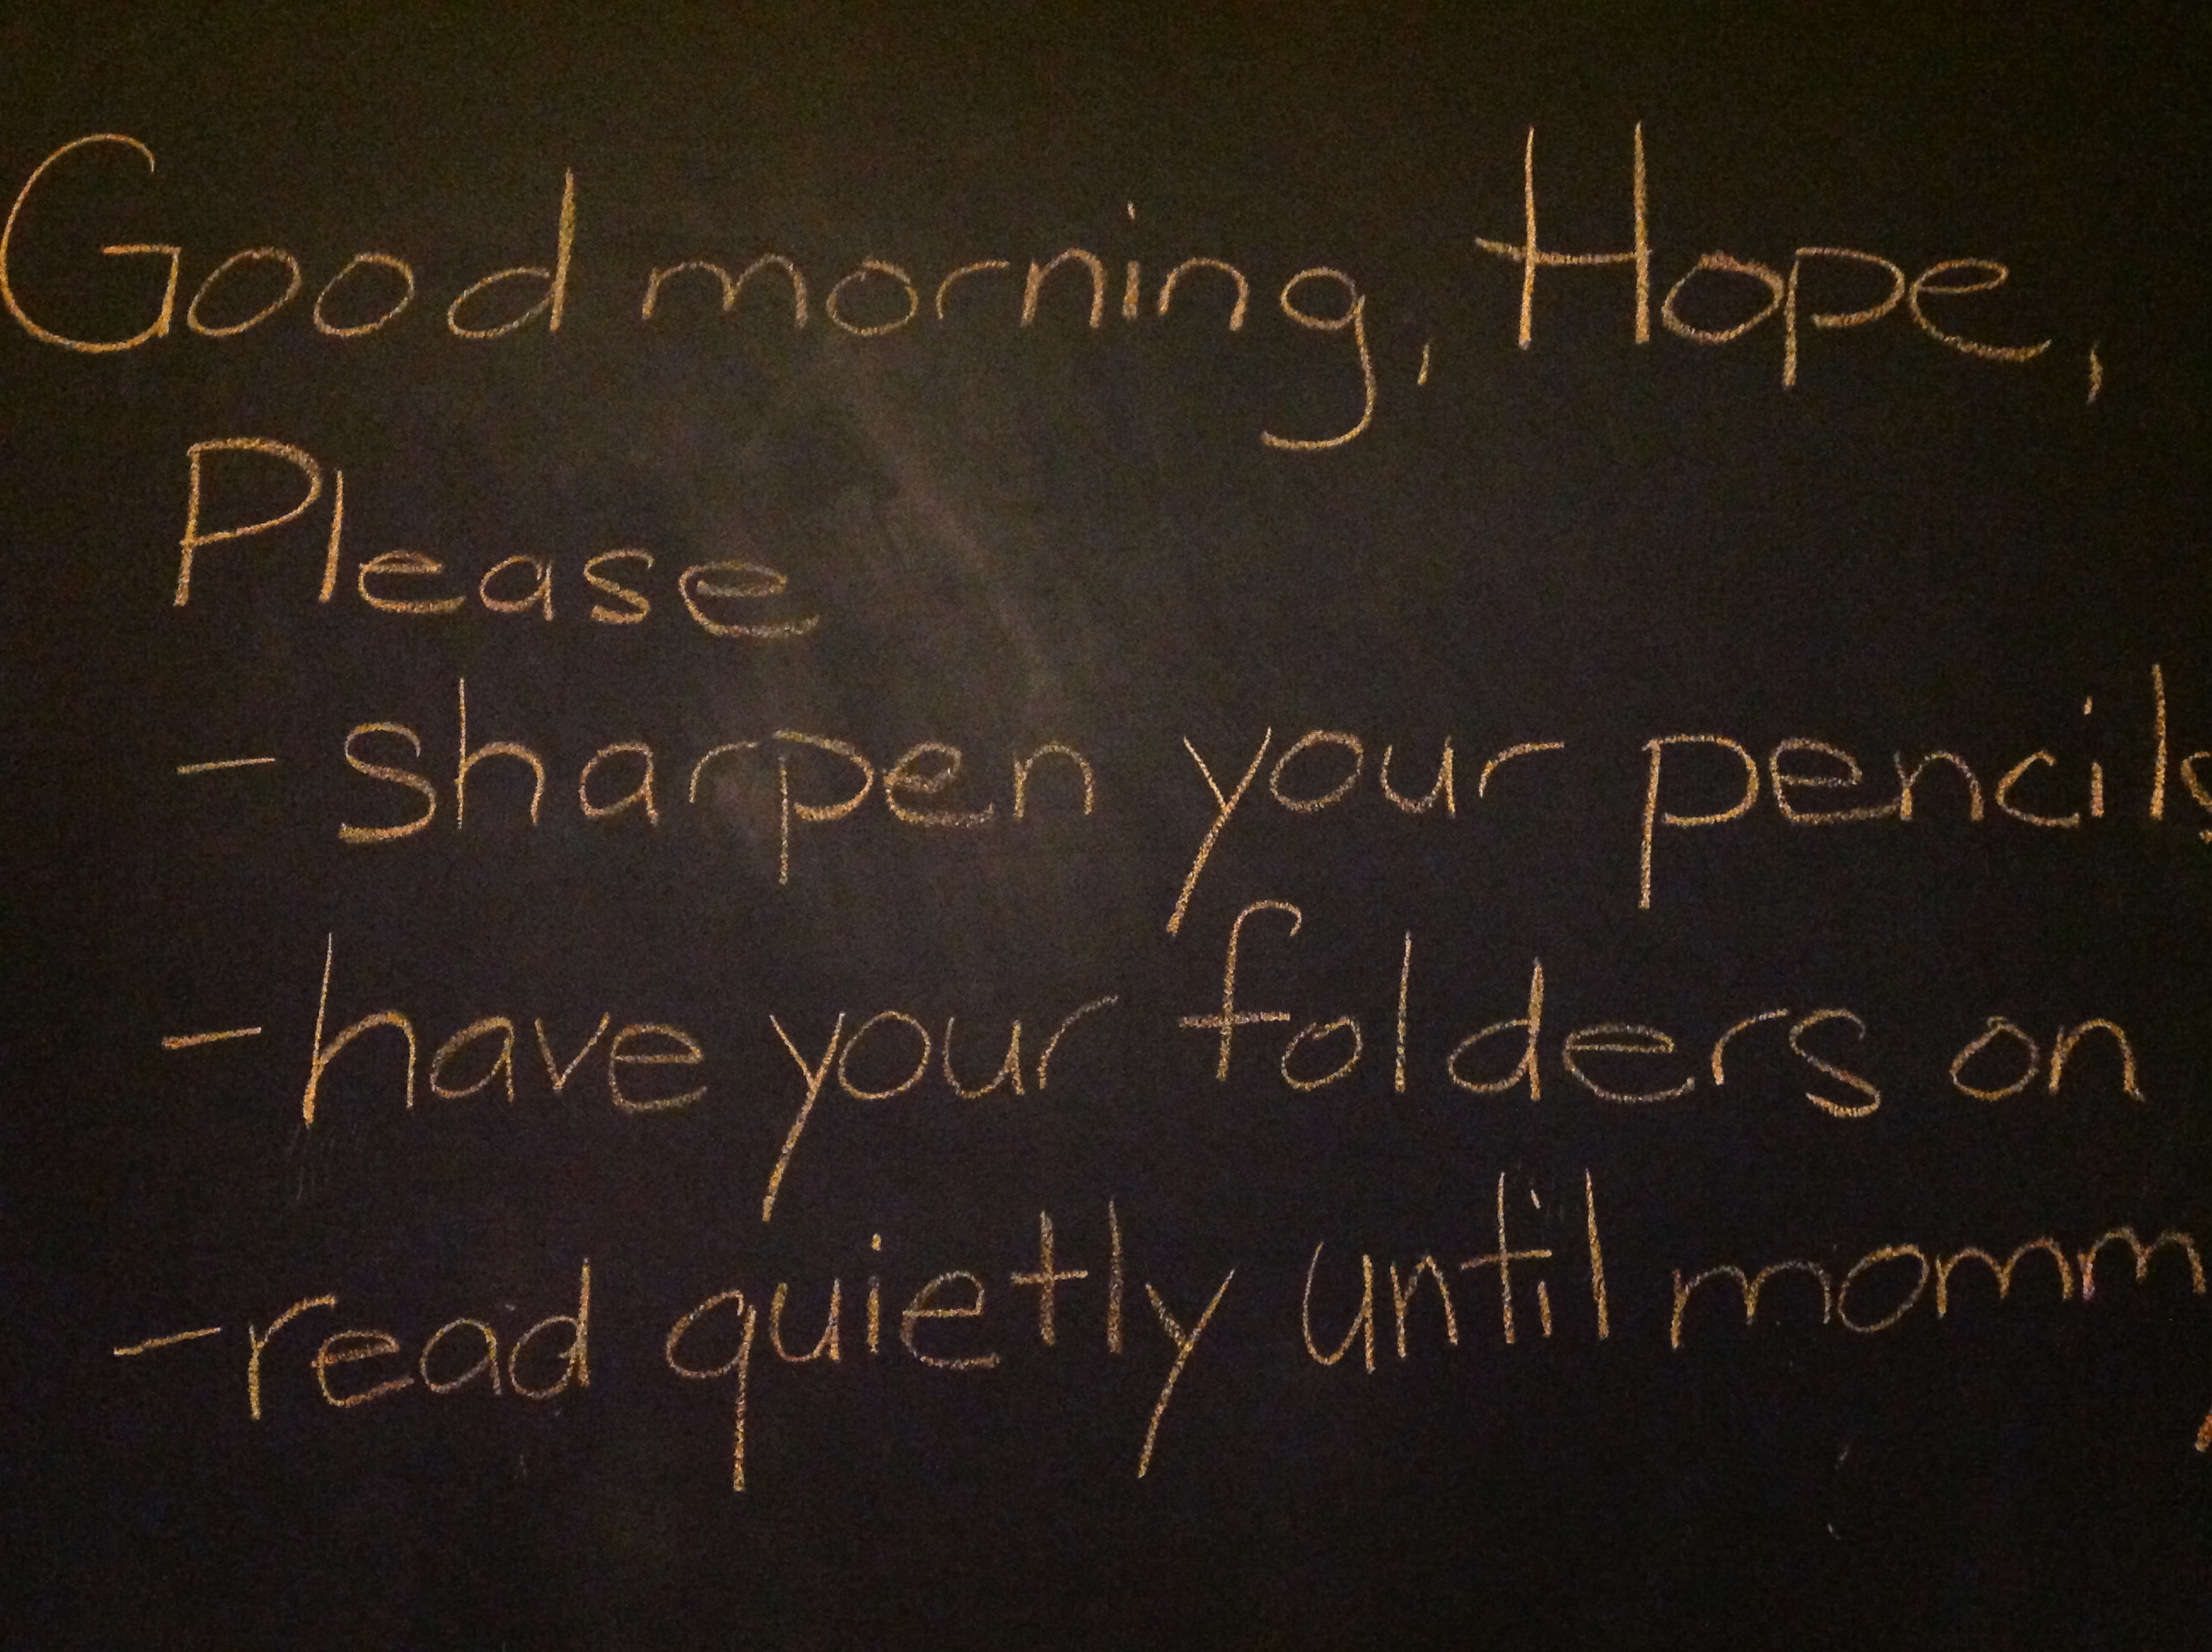 Good morning, Hope,
Please
- sharpen your pencils
- have your folders on
- read quietly until mommy